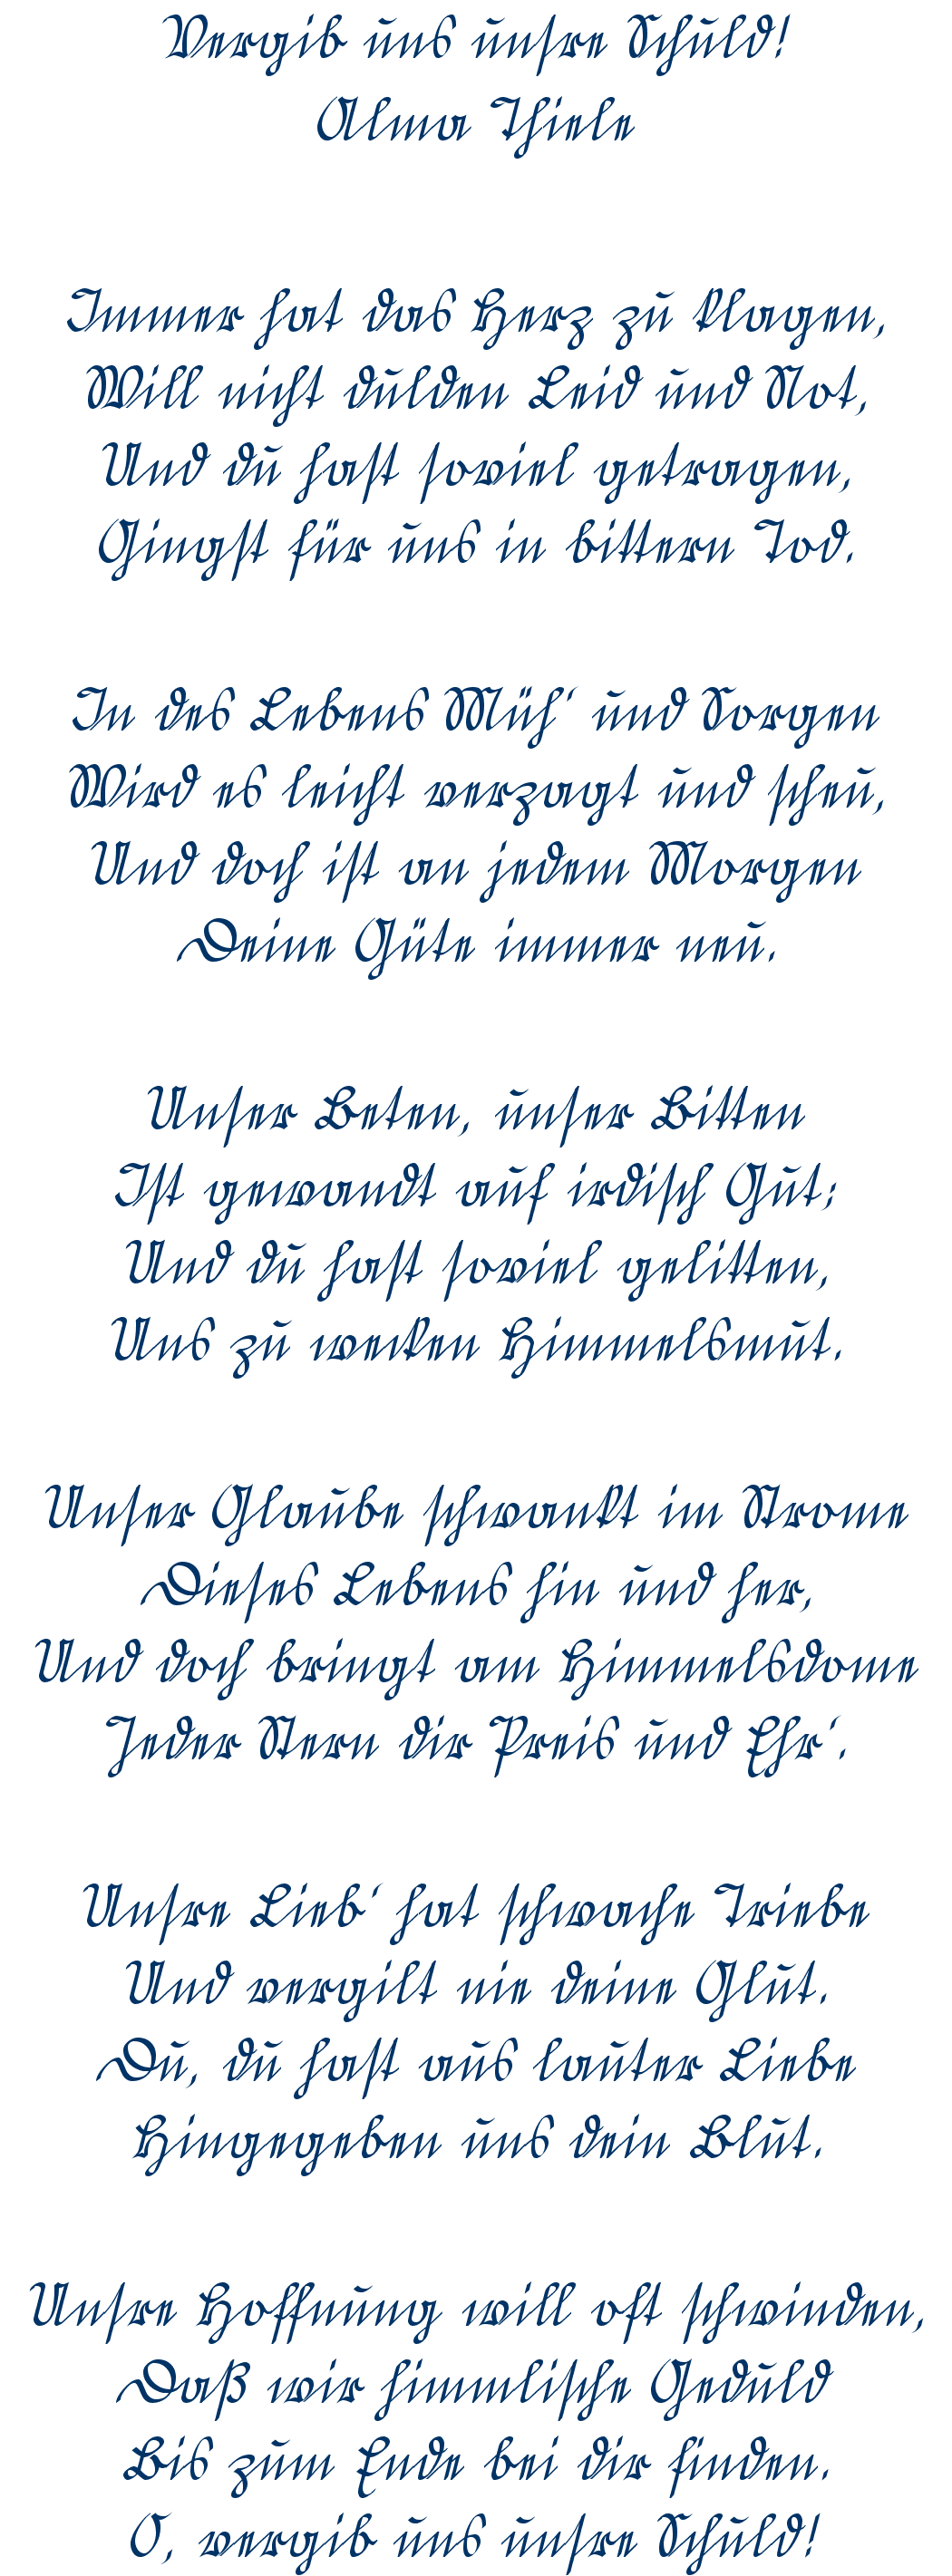 Vergib uns unsre Schuld!
Alma Thiele
Immer hat das Herz zu klagen,
Will nicht dulden Leid und Not,
Und du hast soviel getragen,
Gingst für uns in bittern Tod.
In des Lebens Müh' und Sorgen
Wird es leicht verzagt und scheu,
Und doch ist an jedem Morgen
Deine Güte immer neu.
Unser Beten, unser Bitten
Ist gewandt auf irdisch Gut;
Und du hast soviel gelitten,
Uns zu wecken Himmelsmut.
Unser Glaube schwankt im Strome
Dieses Lebens hin und her,
Und doch bringt am Himmelsdome
Jeder Stern dir Preis und Ehr'.
Unsre Lieb' hat schwache Triebe
Und vergilt nie deine Glut.
Du, du hast aus lauter Liebe
Hingegeben uns dein Blut.
Unsre Hoffnung will oft schwinden,
Daß wir himmlische Geduld
Bis zum Ende bei dir finden.
O, vergib uns unsre Schuld!